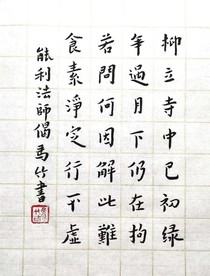 柳立寺中已初绿
年過月下仍在拘
若問何因解此難
食素淨定行不虛
能利法師偈馬竹書